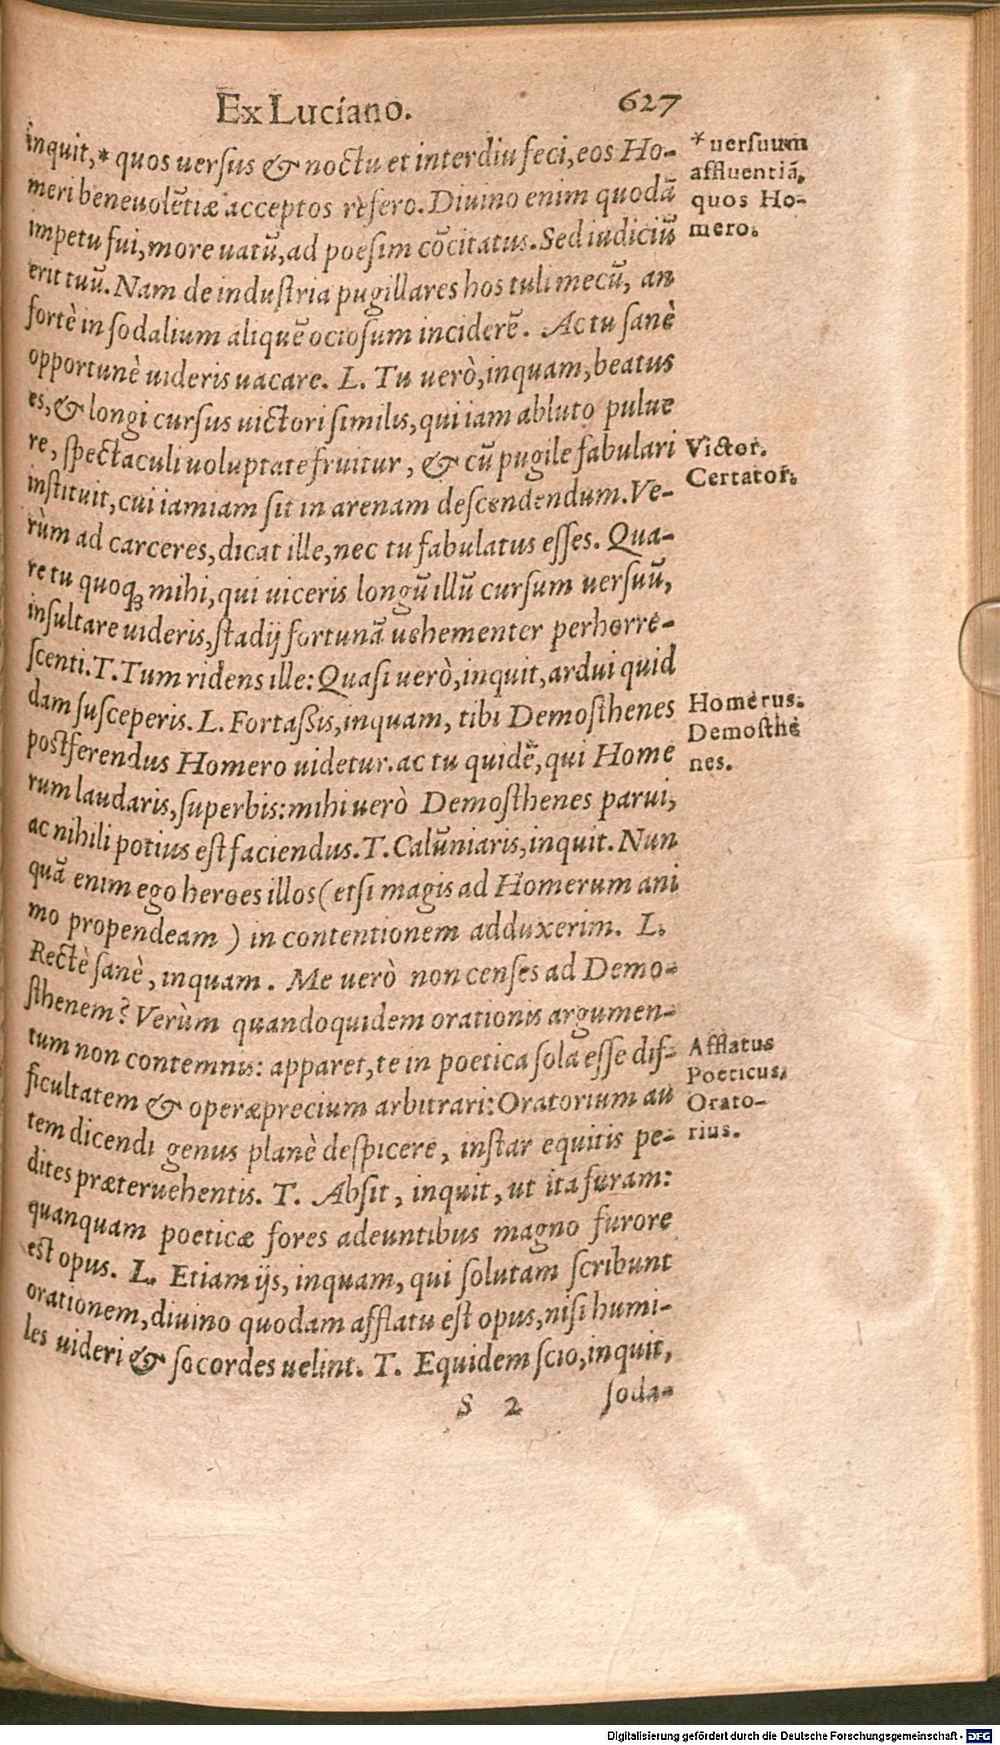 Ex Luciano. 627
inquit,* quos uersus & noctu et interdiu feci, eos Ho-
meri beneuolẽtiæ acceptos refero. Diuino enim quodã
impetu fui, more uatũ, ad poesim cõcitatus. Sed iudiciũ
erit tuũ. Nam de industria pugillares hos tuli mecũ, an
fortè in sodalium aliquẽ ociosum inciderẽ. Ac tu sanè
opportunè uideris uacare. L. Tu uerò, inquam, beatus
es, & longi cursus uictori similis, qui iam abluto pulue
re, spectaculi uoluptate fruitur, & cũ pugile fabulari
instituit, cui iamiam sit in arenam descendendum. Ve-
rùm ad carceres, dicat ille, nec tu fabulatus esses. Qua-
re tu quoq; mihi, qui uiceris longũ illũ cursum uersuũ,
insultare uideris, stadij fortunã uehementer perhorre-
scenti. T. Tum ridens ille: Quasi uerò, inquit, ardui quid
dam susceperis. L. Fortaßis, inquam, tibi Demosthenes
postferendus Homero uidetur. ac tu quidẽ, qui Home
rum laudaris, superbis: mihi uerò Demosthenes parui,
ac nihili potius est faciendus. T. Calũniaris, inquit. Nun
quã enim ego heroes illos ( etsi magis ad Homerum ani
mo propendeam ) in contentionem adduxerim. L.
Rectè sanè, inquam. Me uerò non censes ad Demo-
sthenem? Verùm quandoquidem orationis argumen-
tum non contemnis: apparet, te in poetica sola esse dif-
ficultatem & operæprecium arbitrari: Oratorium au
tem dicendi genus planè despicere, instar equitis pe-
dites præteruehentis. T. Absit, inquit, ut ita furam:
quanquam poeticæ fores adeuntibus magno furore
est opus. L. Etiam ijs, inquam, qui solutam scribunt
orationem, diuino quodam afflatu est opus, nisi humi-
les uideri & socordes uelint. T. Equidem scio, inquit,
S 2 soda-
* uersuum
affluentiã,
quos Ho-
mero.
Victor.
Certator.
Homerus.
Demosthe
nes.
Afflatus
Poeticus.
Orato-
rius.
Digitalisierung gefördert durch die Deutsche Forschungsgemeinschaft - DFG